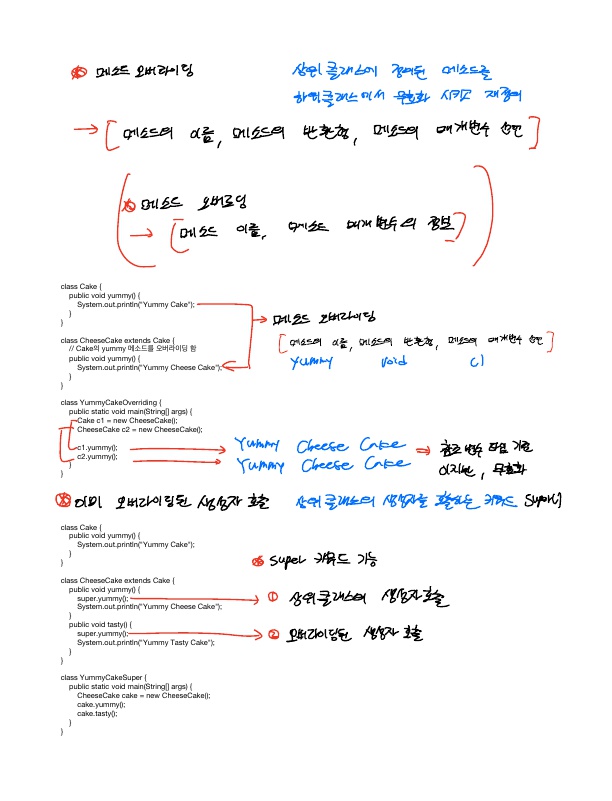 메소드 오버라이딩
상위 클래스에 정의된 메소드를
하위 클래스에서 무효화 시키고 재정의
→ [메소드의 이름, 메소드의 반환형, 메소드의 매개변수 선언]
메소드 오버로딩
→ [메소드 이름, 메소드 매개변수의 정보]
class Cake {
public void yummy() {
System.out.println("Yummy Cake");
}
}
→ 메소드 오버라이딩
class CheeseCake extends Cake {
[메소드의 이름, 메소드의 반환형, 메소드의 매개변수 선언]
// Cake의 yummy 메소드를 오버라이딩 함
public void yummy() {
yummy void
System.out.println("Yummy Cheese Cake");
}
}
class YummyCakeOverriding {
public static void main(String[] args) {
Cake c1 = new CheeseCake();
CheeseCake c2 = new CheeseCake();
c1.yummy(); → Yummy Cheese Cake → 참조변수 타입 기준
c2.yummy(); → Yummy Cheese Cake 이지만, 무효화
}
}
이미 오버라이딩된 생성자 호출 상위 클래스의 생성자를 호출하는 키워드 super()
class Cake {
public void yummy() {
System.out.println("Yummy Cake");
}
}
super 키워드 기능
class CheeseCake extends Cake {
public void yummy() {
super.yummy(); → ① 상위클래스의 생성자 호출
System.out.println("Yummy Cheese Cake");
}
public void tasty() {
super.yummy(); → ② 오버라이딩된 생성자 호출
System.out.println("Yummy Tasty Cake");
}
}
class YummyCakeSuper {
public static void main(String[] args) {
CheeseCake cake = new CheeseCake();
cake.yummy();
cake.tasty();
}
}